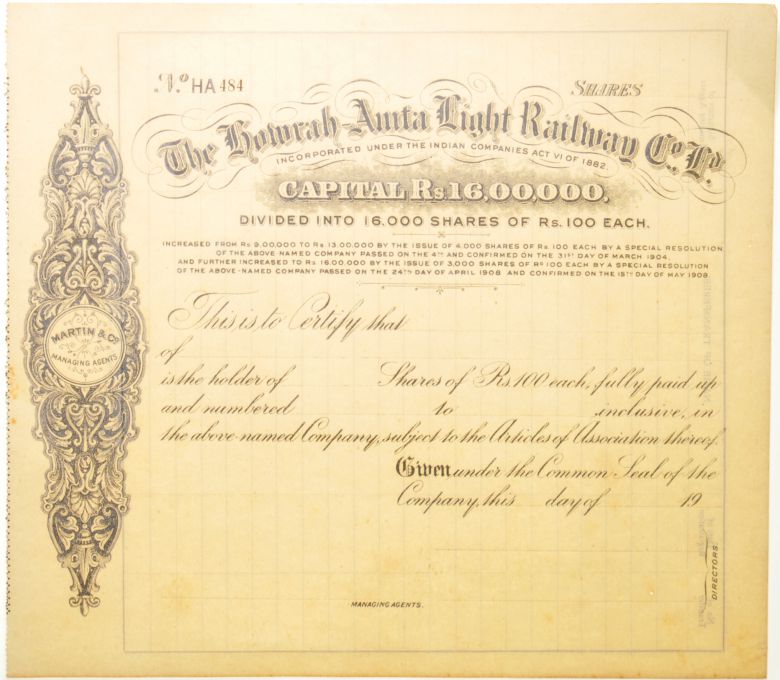 No HA 484
SHARES
The Howrah-Amta Light Railway Co. Ld.
INCORPORATED UNDER THE INDIAN COMPANIES ACT VI OF 1882.
CAPITAL Rs 16,00,000.
DIVIDED INTO 16,000 SHARES OF Rs. 100 EACH.
INCREASED FROM Rs 9,00,000 TO Rs 13,00,000 BY THE ISSUE OF 4,000 SHARES OF Rs. 100 EACH BY A SPECIAL RESOLUTION
OF THE ABOVE-NAMED COMPANY PASSED ON THE 4TH AND CONFIRMED ON THE 31ST DAY OF MARCH 1904,
AND FURTHER INCREASED TO Rs 16,00,000 BY THE ISSUE OF 3,000 SHARES OF Rs 100 EACH BY A SPECIAL RESOLUTION
OF THE ABOVE-NAMED COMPANY PASSED ON THE 24TH DAY OF APRIL 1908 AND CONFIRMED ON THE 15TH DAY OF MAY 1908.
This is to Certify that
of
is the holder of Shares of Rs. 100 each, fully paid up
and numbered to inclusive, in
the above-named Company, subject to the Articles of Association thereof.
Given under the Common Seal of the
Company, this day of 19
MARTIN & Co
MANAGING AGENTS
DIRECTORS.
MANAGING AGENTS.